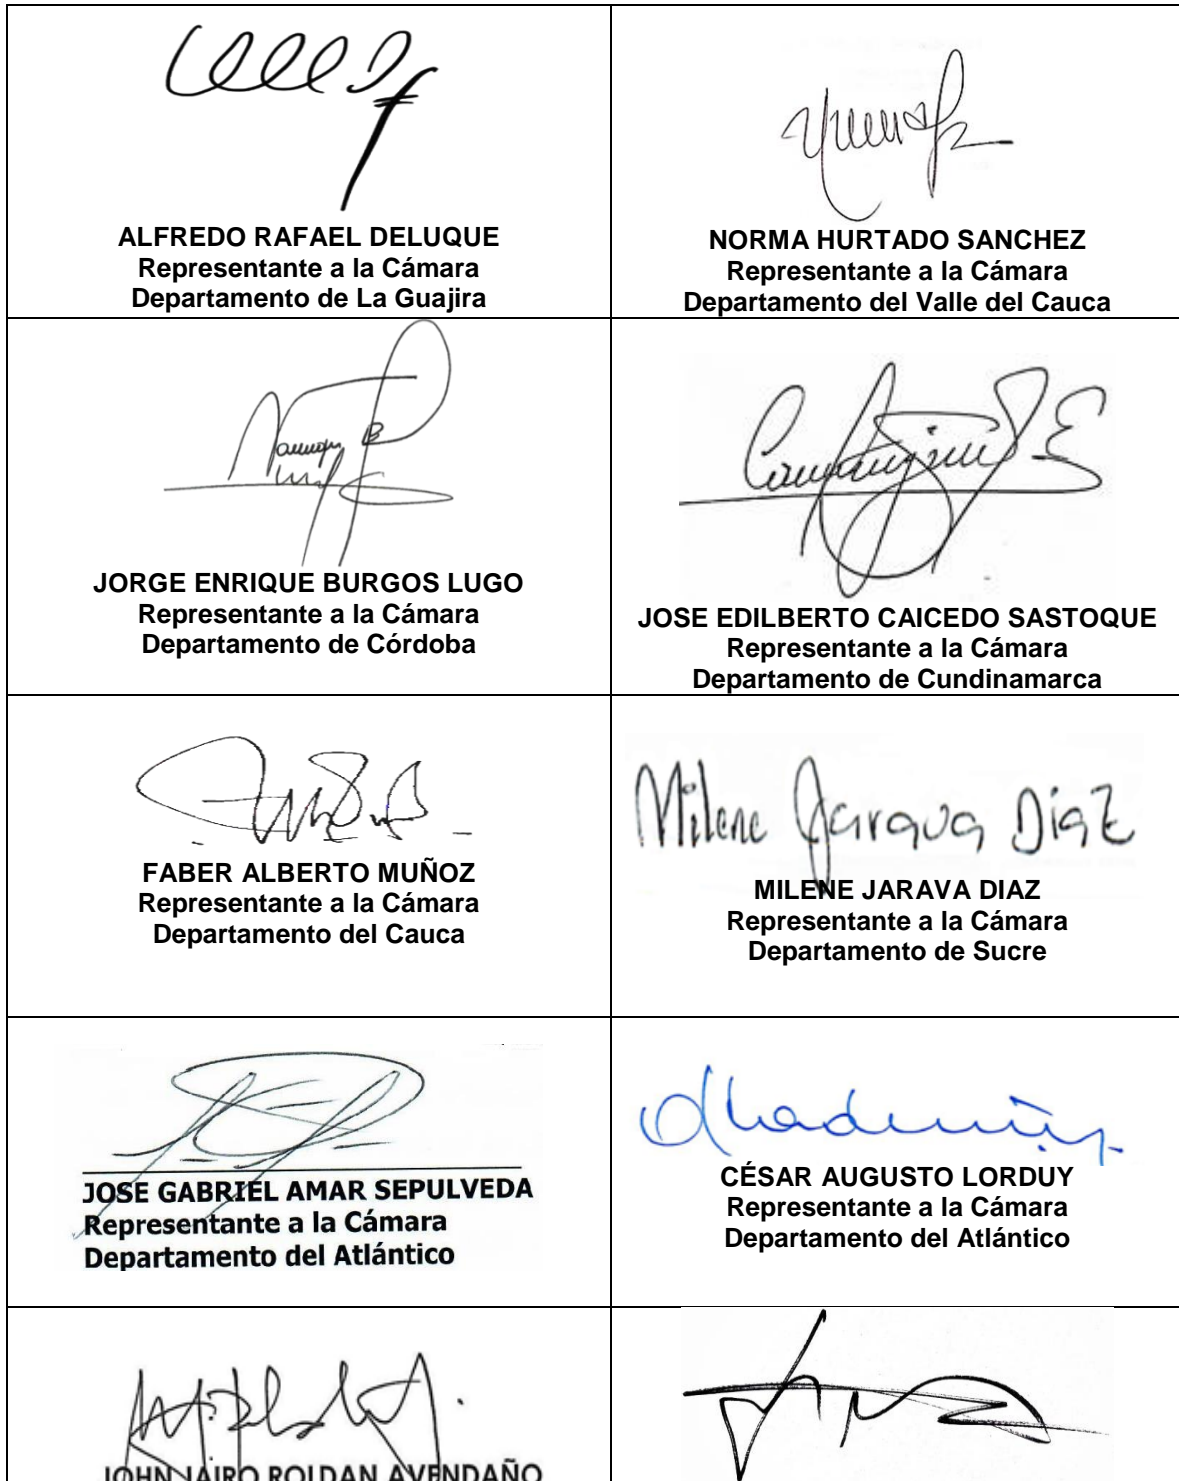 ALFREDO RAFAEL DELUQUE
Representante a la Cámara
Departamento de La Guajira
NORMA HURTADO SANCHEZ
Representante a la Cámara
Departamento del Valle del Cauca
JORGE ENRIQUE BURGOS LUGO
Representante a la Cámara
Departamento de Córdoba
JOSE EDILBERTO CAICEDO SASTOQUE
Representante a la Cámara
Departamento de Cundinamarca
FABER ALBERTO MUÑOZ
Representante a la Cámara
Departamento del Cauca
Milene Jarava Diaz
MILENE JARAVA DIAZ
Representante a la Cámara
Departamento de Sucre
JOSE GABRIEL AMAR SEPULVEDA
Representante a la Cámara
Departamento del Atlántico
CÉSAR AUGUSTO LORDUY
Representante a la Cámara
Departamento del Atlántico
JOHN JAIRO ROLDAN AVENDAÑO